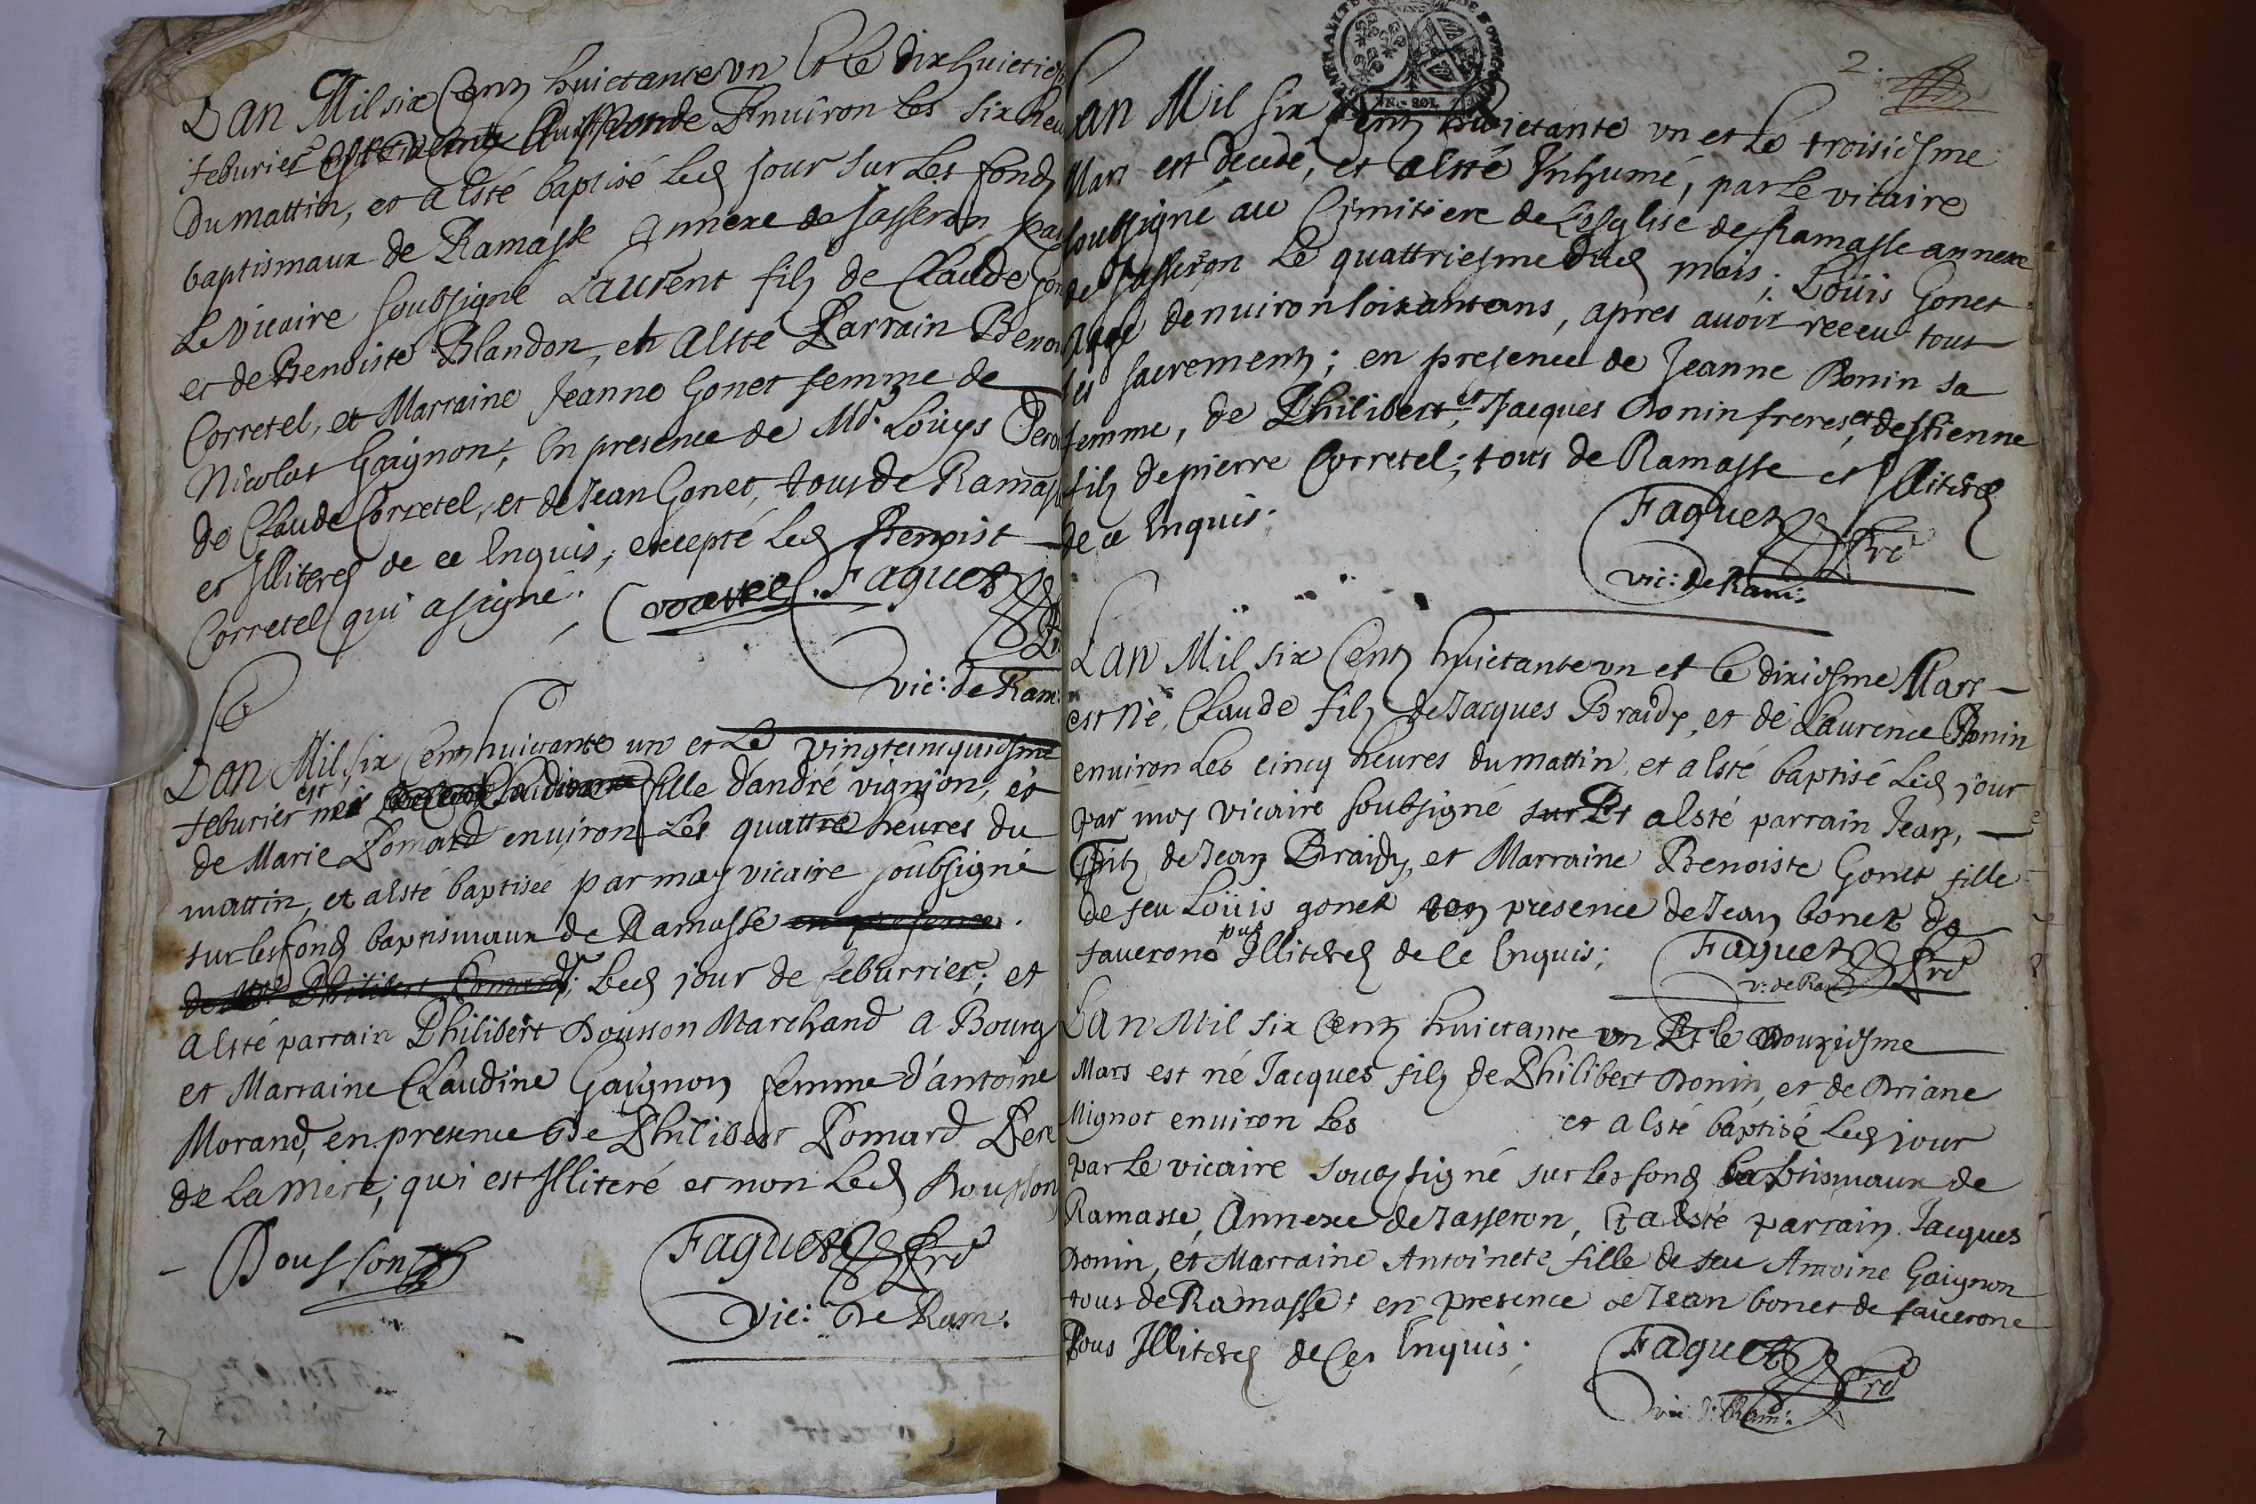 Lan Mil six Centz huictante vn Et le dixhuictie
feburier Environ les six heu
du mattin, et a Esté baptisé led jour sur les fondz
baptismaux de Ramasse Annexe de Jasseron, par
Le vicaire soubsigné Laurent filz de Claude
et de Benoiste Blandon, et a Esté Parrain Benoi
Corretel, et Marraine Jeanne Gonet femme de
Nicolas Gaignon, En presence de Mr. Loüys
de Claude Corretel, et de Jean Gonet, tous de Ramass
et Illiterez de ce Enquis, excepté led Benoist
Corretel qui a signé.
Corretel. Faguet
vic: de Ram:
Lan Mil six Centz huictante un et Le vingtcinquiesme
feburier est née fille d'andré vignion, et
de Marie Pomard environ Les quattre heures du
mattin, et a esté baptisée par moy vicaire soubsigné
sur les fondz baptismaux de Ramasse en presence
de Mr. Philibert Pomard; led jour de feburrier; et
a Esté parrain Philibert Bousson Marchand a Bourg
et Marraine Claudine Gaignon femme d'antoine
Morand, en presence de Philibert Pomard Pere
de La mere, qui est Illiteré et non Led Bousson
Bousson Faguet Pre
Vic: De Ram:
2.
GENERALITÉ DE BOURGOGNE
VN. SOL
Lan Mil six Centz huictante vn et Le troisiesme
Mars est decedé, et a Esté Inhumé, par le vicaire
soubsigné au Cimitiere de L'Esglise de Ramasse annexe
de Jasseron Le quattriesme dud mois; Loüis Gonet
Agé denuiron soixante ans, apres avoir receu tous
les sacrementz; en presence de Jeanne Bonin sa
femme, de Philibert, et Jacques Bonin freres, et destienne
filz de pierre Corretel; tous de Ramasse et Illiterez
de ce Enquis.
Faguet Pre
vic: de Ram:
Lan Mil six Centz huictante vn et le dixiesme Mars
est né, Claude filz de Jacques Braidy, et de Laurence Bonin
environ Les cinq heures du mattin, et a Esté baptisé Led jour
par moy vicaire soubsigné sur Et a Esté parrain Jean,
Filz de Jean Braidy, et Marraine Benoiste Gonet fille
de feu Loüis gonet en presence de Jean bonet de
tauerone tous Illiterez de Ce Enquis;
Faguet Pre
v: de Ram
Lan Mil six Centz huictante vn Et le douziesme
Mars est né Jacques filz de Philibert Bonin, et de Briane
Mignot environ Les et a Esté baptisé Led jour
par Le vicaire soubsigné sur les fondz babtismaux de
Ramasse, Annexe de Jasseron, Et a Esté parrain Jacques
Bonin, et Marraine Antoinete fille de feu Antoine Gaignon
tous de Ramasse; en presence de Jean bonet de tauerone
Tous Illiterez de Ces Enquis;
Faguet Pre
vic: de Ram: